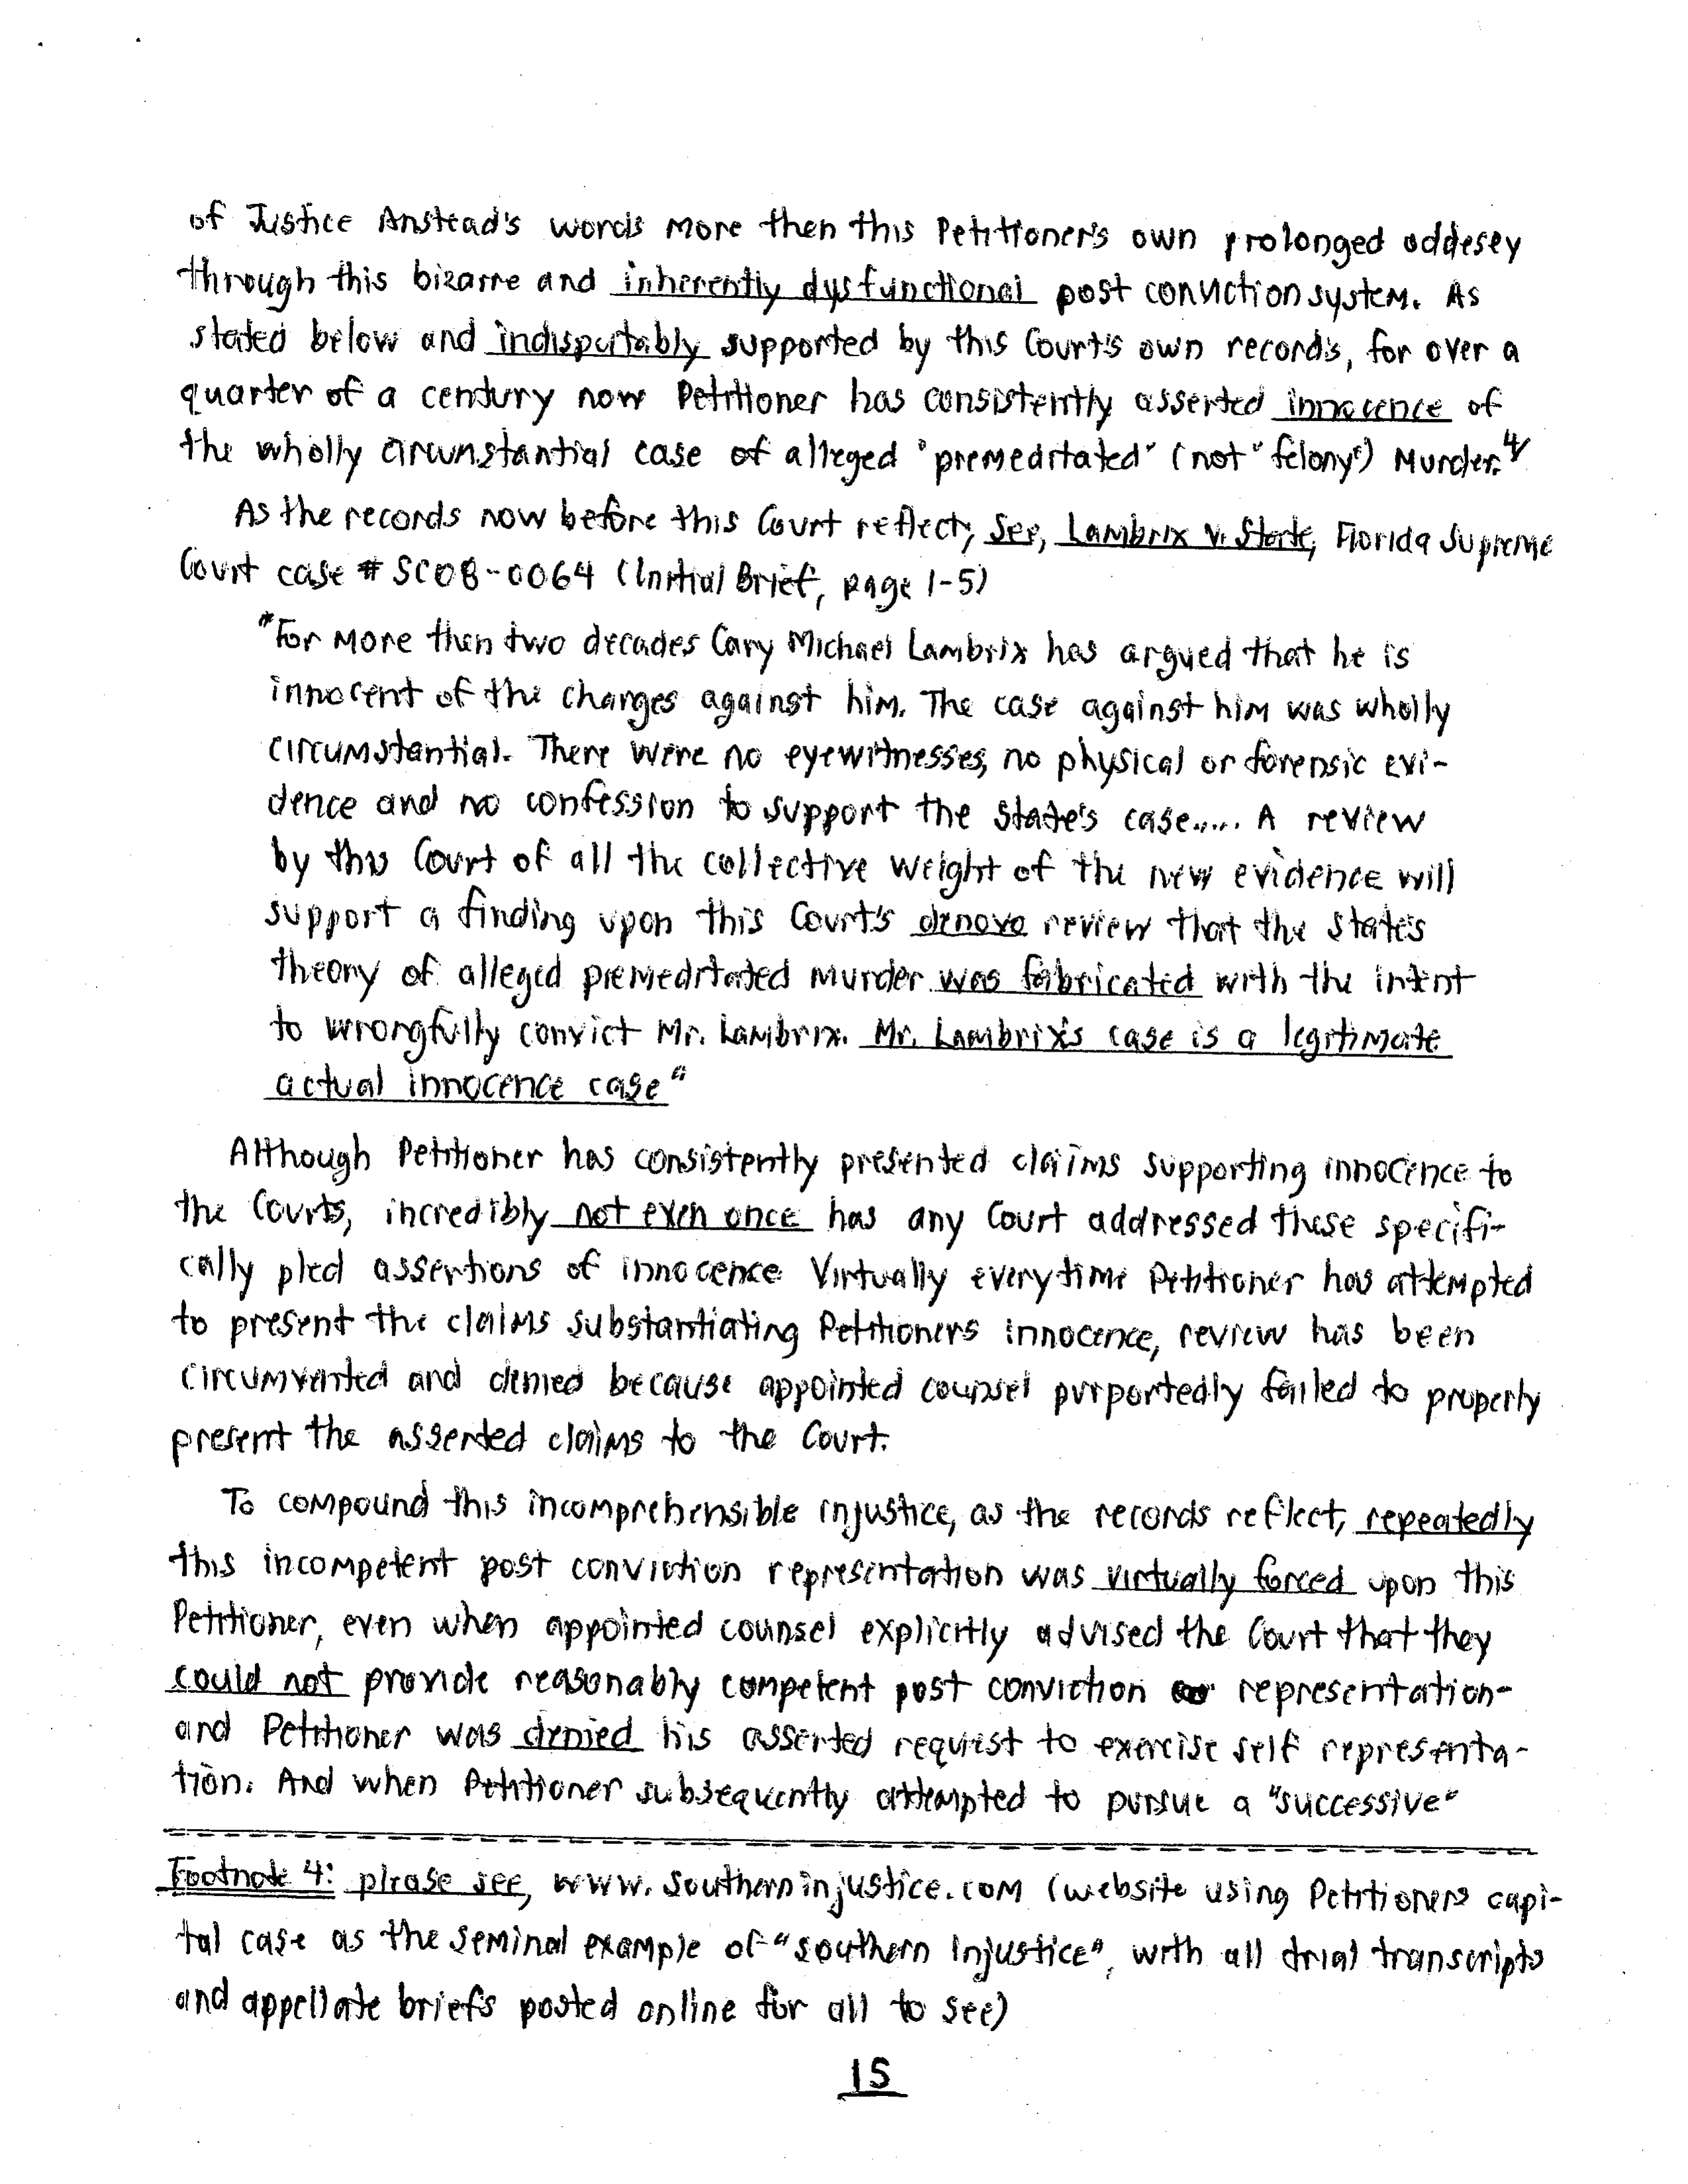 of Justice Anstead's words more then this Petitioner's own prolonged oddesey
through this bizarre and inherently dysfunctional post conviction system. As
stated below and indisputably supported by this Court's own records, for over a
quarter of a century now Petitioner has consistently asserted innocence of
the wholly circumstantial case of alleged "premeditated" (not "felony") Murder. 4/
As the records now before this Court reflect, See, Lambrix v. State, Florida Supreme
Court case # SC08-0064 (Initial Brief, page 1-5)
"For more then two decades Cary Michael Lambrix has argued that he is
innocent of the charges against him. The case against him was wholly
circumstantial. There were no eyewitnesses, no physical or forensic evi-
dence and no confession to support the State's case..... A review
by this Court of all the collective weight of the new evidence will
support a finding upon this Court's denovo review that the State's
theory of alleged premeditated murder was fabricated with the intent
to wrongfully convict Mr. Lambrix. Mr. Lambrix's case is a legitimate
actual innocence case"
Although Petitioner has consistently presented claims supporting innocence to
the Courts, incredibly not even once has any Court addressed these specifi-
cally pled assertions of innocence. Virtually everytime Petitioner has attempted
to present the claims substantiating Petitioners innocence, review has been
circumvented and denied because appointed counsel purportedly failed to properly
present the asserted claims to the Court.
To compound this incomprehensible injustice, as the records reflect, repeatedly
this incompetent post conviction representation was virtually forced upon this
Petitioner, even when appointed counsel explicitly advised the Court that they
could not provide reasonably competent post conviction representation-
and Petitioner was denied his asserted request to exercise self representa-
tion. And when Petitioner subsequently attempted to pursue a "successive"
Footnote 4: please see, www.southerninjustice.com (website using Petitioners capi-
tal case as the seminal example of "southern Injustice", with all trial transcripts
and appellate briefs posted online for all to see)
15